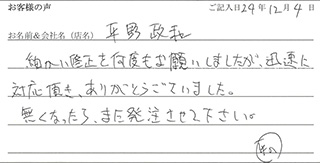 お客様の声 ご記入日24年12月4日
お名前&会社名(店名) 平野 政和
細かい修正を何度もお願いしましたが、迅速に
対応頂き、ありがとうございました。
無くなったら、また発注させて下さい。